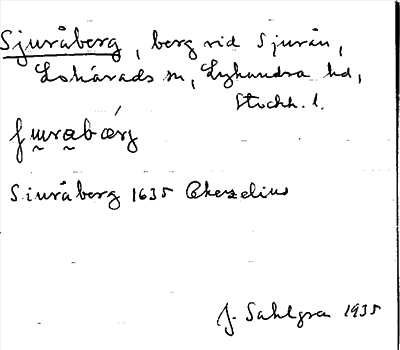 Sjuråberg, berg vid Sjurån,
Lohärads sn, Lyhundra hd,
Stockh. l.
ʃɯrabærg
Siuråberg 1635 Ekezelius
J. Sahlgren 1935